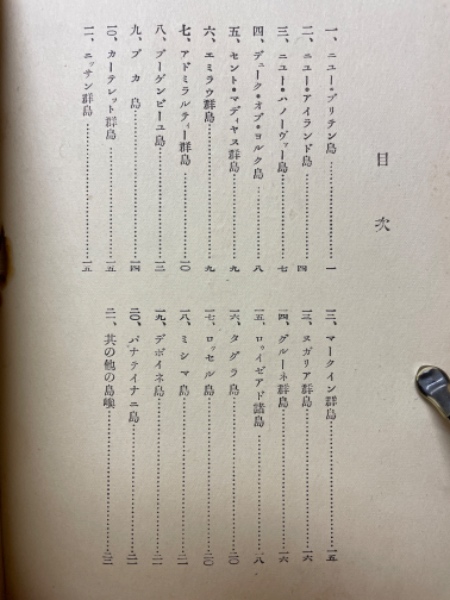 目次
一、ニュー・ブリテン島…………一
二、ニュー・アイランド島…………四
三、ニュー・ハノーヴァー島…………七
四、デューク・オブ・ヨルク島…………八
五、セント・マディヤス群島…………九
六、エミラウ群島…………九
七、アドミラルティー群島…………一〇
八、ブーゲンビーユ島…………一二
九、ブカ島…………一四
一〇、カーテレット群島…………一五
一一、ニッサン群島…………一五
一二、マークイン群島…………一五
一三、ヌガリア群島…………一六
一四、グルーネ群島…………一六
一五、ロゥイゼアド諸島…………一八
一六、タグラ島…………二〇
一七、ロッセル島…………二〇
一八、ミシマ島…………二一
一九、デボイネ島…………二一
二〇、パナテイナニ島…………二二
二一、其の他の島嶼…………二二